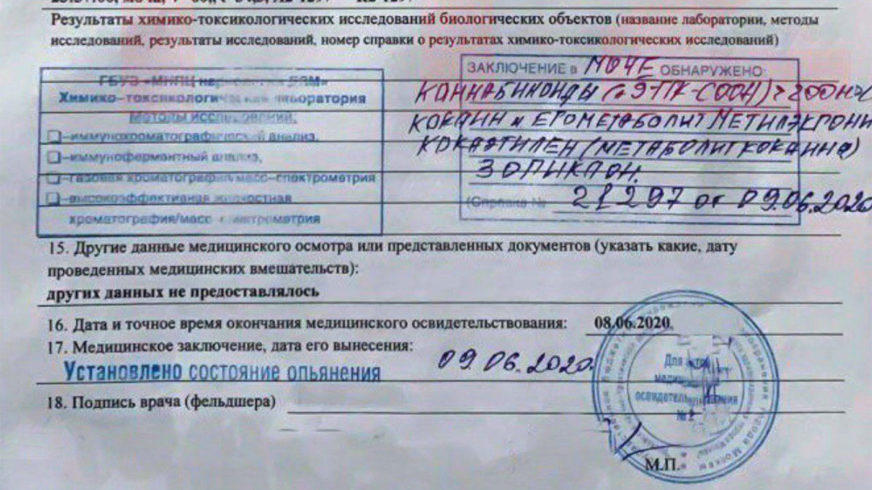 Результаты химико-токсикологических исследований биологических объектов (название лаборатории, методы
исследований, результаты исследований, номер справки о результатах химико-токсикологических исследований)
ГБУЗ «МНПЦ наркологии ДЗМ»
Химико-токсикологическая лаборатория
Методы исследований:
–иммунохроматографический анализ,
–иммуноферментный анализ,
–газовая хроматография/масс-спектрометрия
–высокоэффективная жидкостная
хроматография/масс-спектрометрия
ЗАКЛЮЧЕНИЕ в МОЧЕ ОБНАРУЖЕНО:
КАННАБИНОИДЫ
КОКАИН и ЕГО МЕТАБОЛИТ
КОКАЭТИЛЕН (МЕТАБОЛИТ КОКАИНА)
ЗОПИКЛОН.
(Справка № 21297 от 09.06.2020
15. Другие данные медицинского осмотра или представленных документов (указать какие, дату
проведенных медицинских вмешательств):
других данных не предоставлялось
16. Дата и точное время окончания медицинского освидетельствования: 08.06.2020
17. Медицинское заключение, дата его вынесения: 09.06.2020.
Установлено состояние опьянения
18. Подпись врача (фельдшера)
Для
освидетельствования
№ 2
М.П.